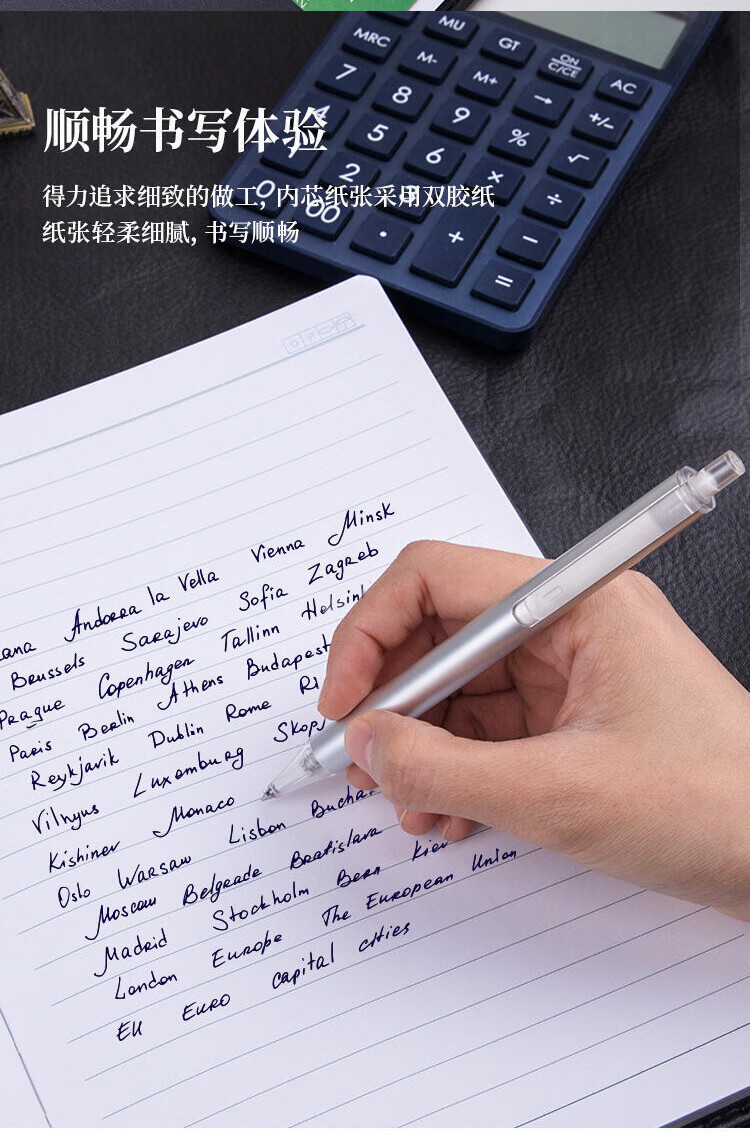 MU
GT
ON
C/CE
AC
MRC
M-
M+
→
+/-
7
8
9
%
√
4
5
6
×
÷
1
2
0
00
.
+
−
=
顺畅书写体验
得力追求细致的做工, 内芯纸张采用双胶纸
纸张轻柔细腻, 书写顺畅
Andorra la Vella Vienna Minsk
Brussels Sarajevo Sofia Zagreb
Prague Copenhagen Tallinn Helsink
Paris Berlin Athens Budapest
Reykjavik Dublin Rome Ri
Vilnyus Luxemburg Skopj
Kishinev Monaco
Oslo Warsaw Lisbon Bucha
Moscow Belgrade Bratislava
Madrid Stockholm Bern Kiev
London Europe The European Union
EU Euro capital cities